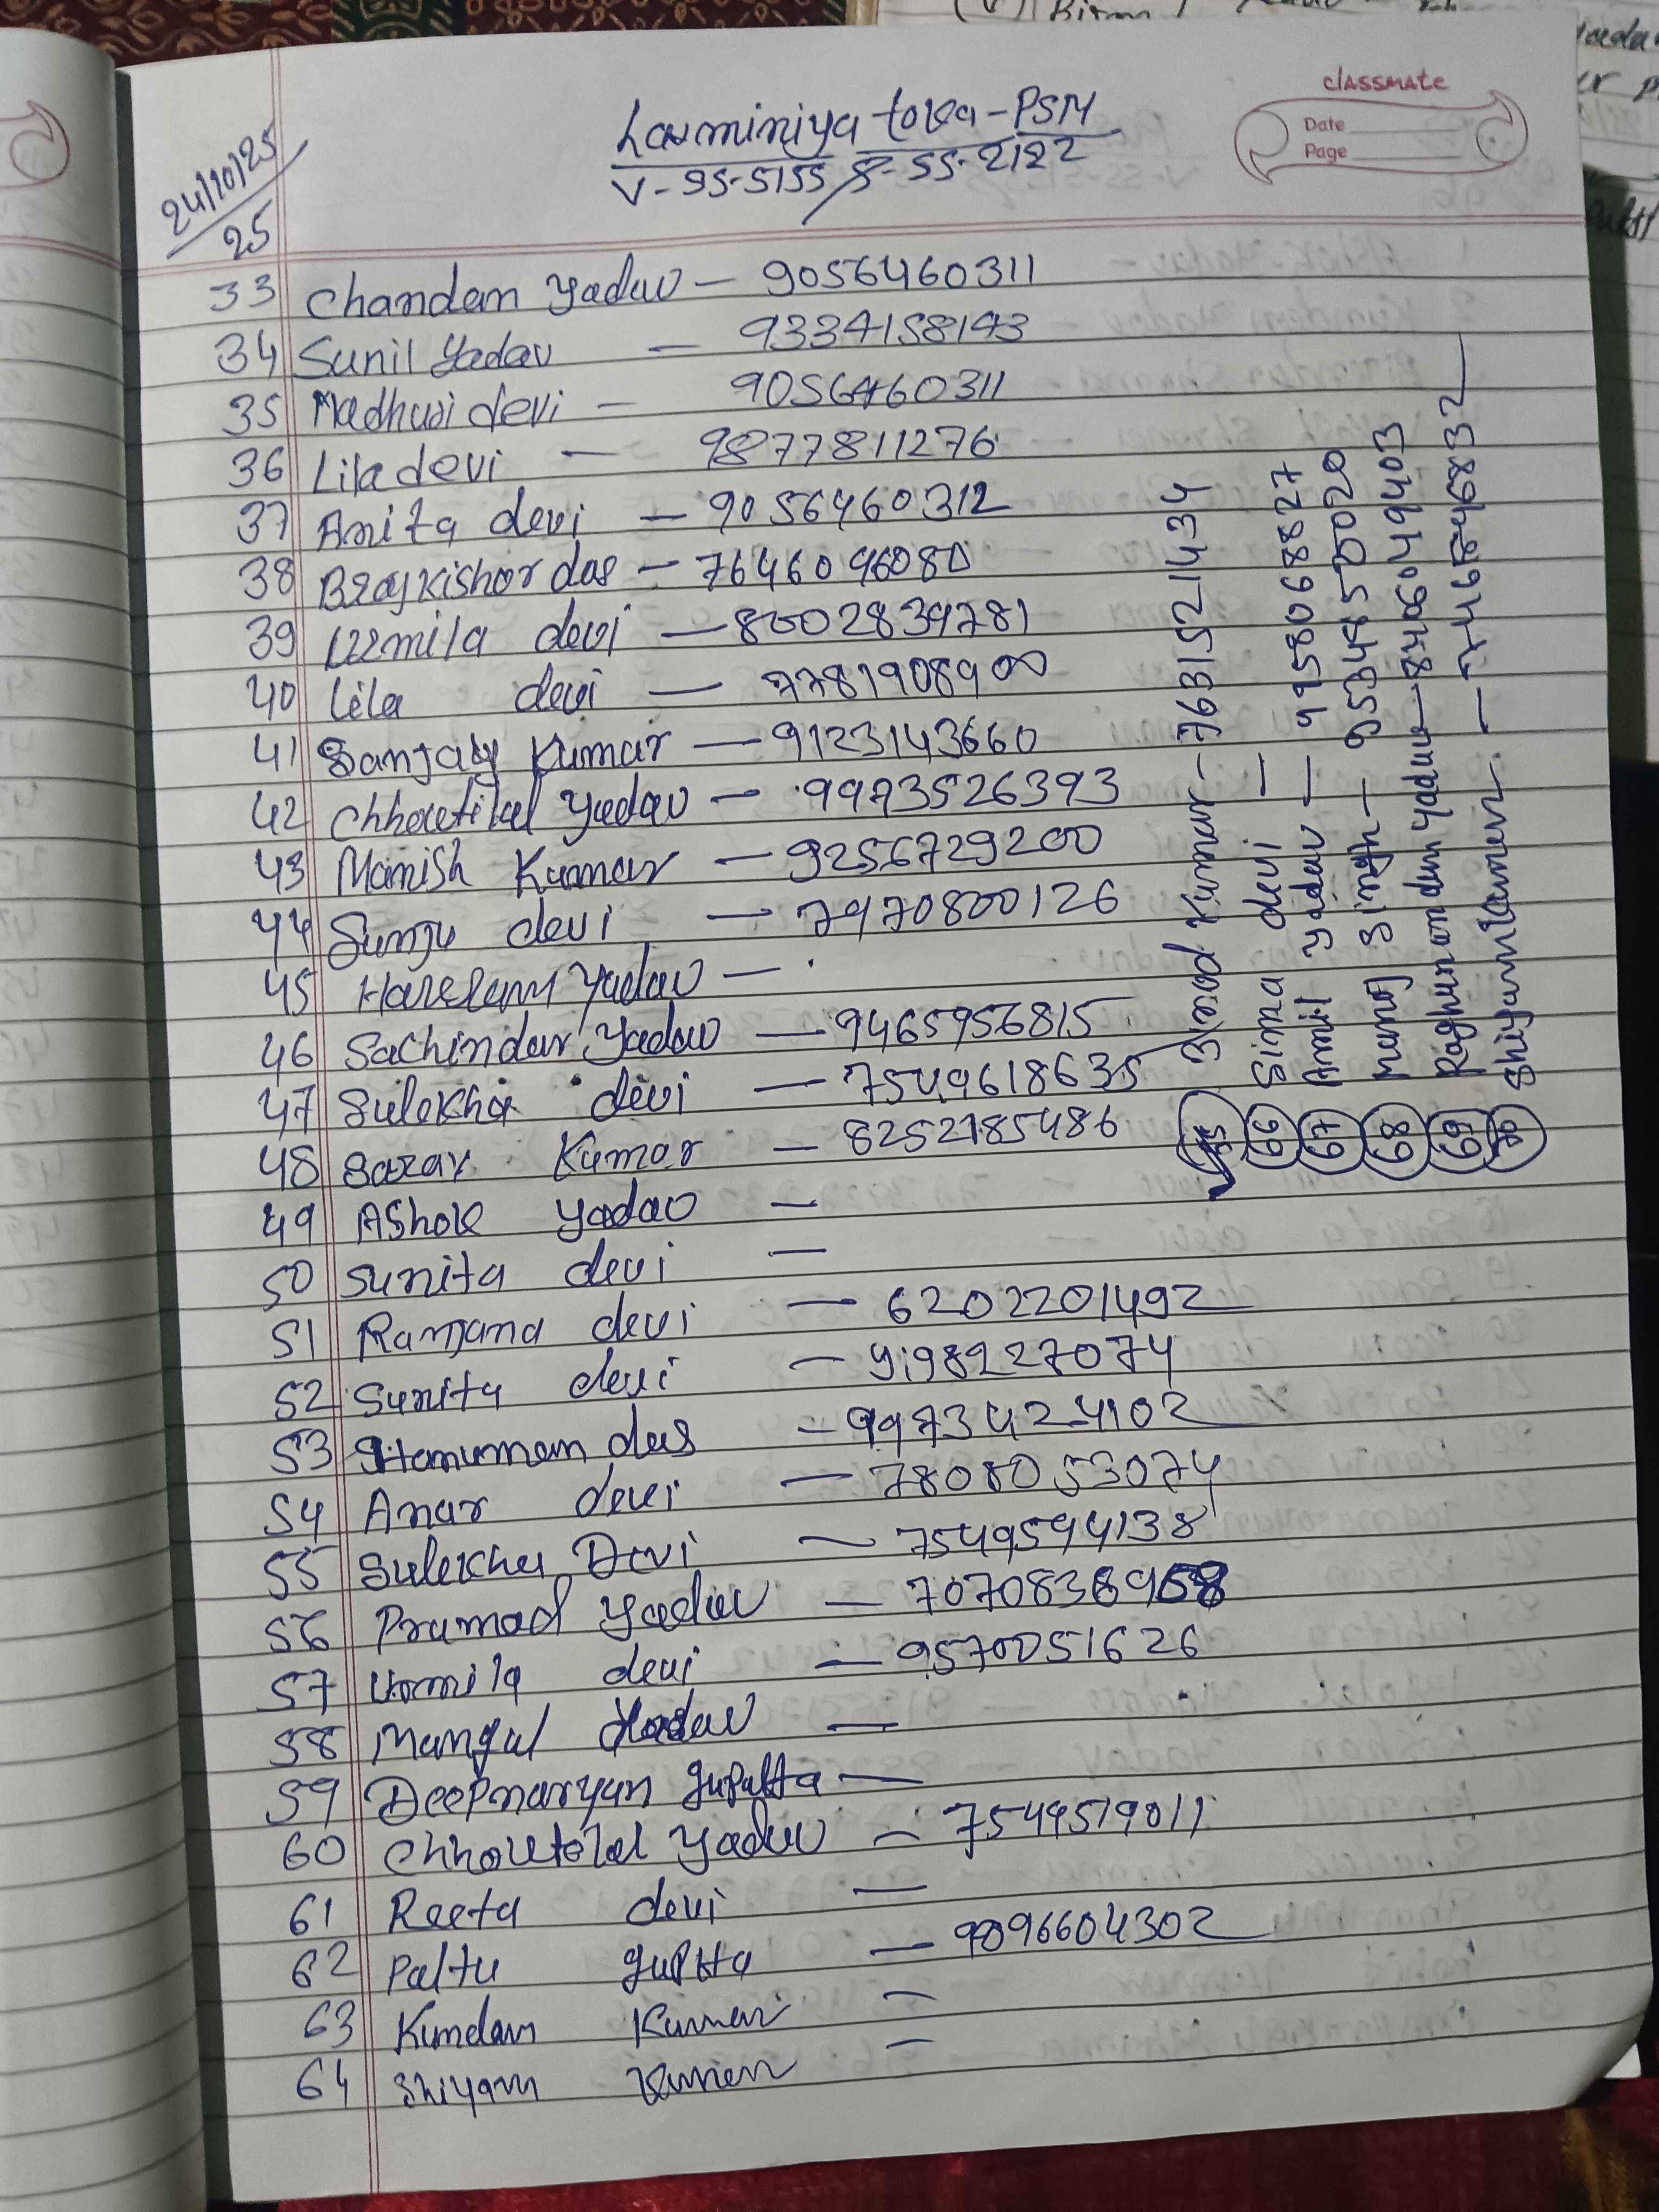 classmate
Date
Page
24/10/25
25
Laxminiya tola-PSM
V-95-5155 S-55-2122
33 Chandan Yadav - 9056460311
34 Sunil Yadav - 9334158143
35 Madhuri devi - 9056460311
36 Lila devi - 9877811276
37 Anita devi - 9056460312
38 Brajkishor das - 7646096080
39 Urmila devi - 8002839781
40 Lila devi - 7781908900
41 Sanjay Kumar - 9123143660
42 Chhoutilal Yadav - 9973526393
43 Manish Kumar - 9256729200
44 Sanju devi - 7970800126
45 Hareram Yadav -
46 Sachindar Yadav - 9465956815
47 Sulekha devi - 7549618635
48 Kumar - 8252185486
49 Ashok Yadav -
50 Sunita devi -
51 Ranjana devi - 6202201492
52 Sunita devi - 9198227074
53 Hanuman das - 9973424102
54 Anar devi - 7808053074
55 Sulekha Devi - 7549594138
56 Pramod Yadav -
57 Urmila devi - 9570051626
58 Mangal Yadav -
59 Deepnaryan guptta -
60 Chhoutelal Yadav - 7549519011
61 Reeta devi -
62 Paltu guptta - 9096604302
63 Kundan Kumar -
64 Shiyam Kumar -
65 Binod Kumar - 7631521434
66 Sima devi -
67 Amil Yadav - 9158068827
68 Manoj Singh - 9534850020
69 Raghunandan Yadav - 8406049403
70 Shiyam Kumar -